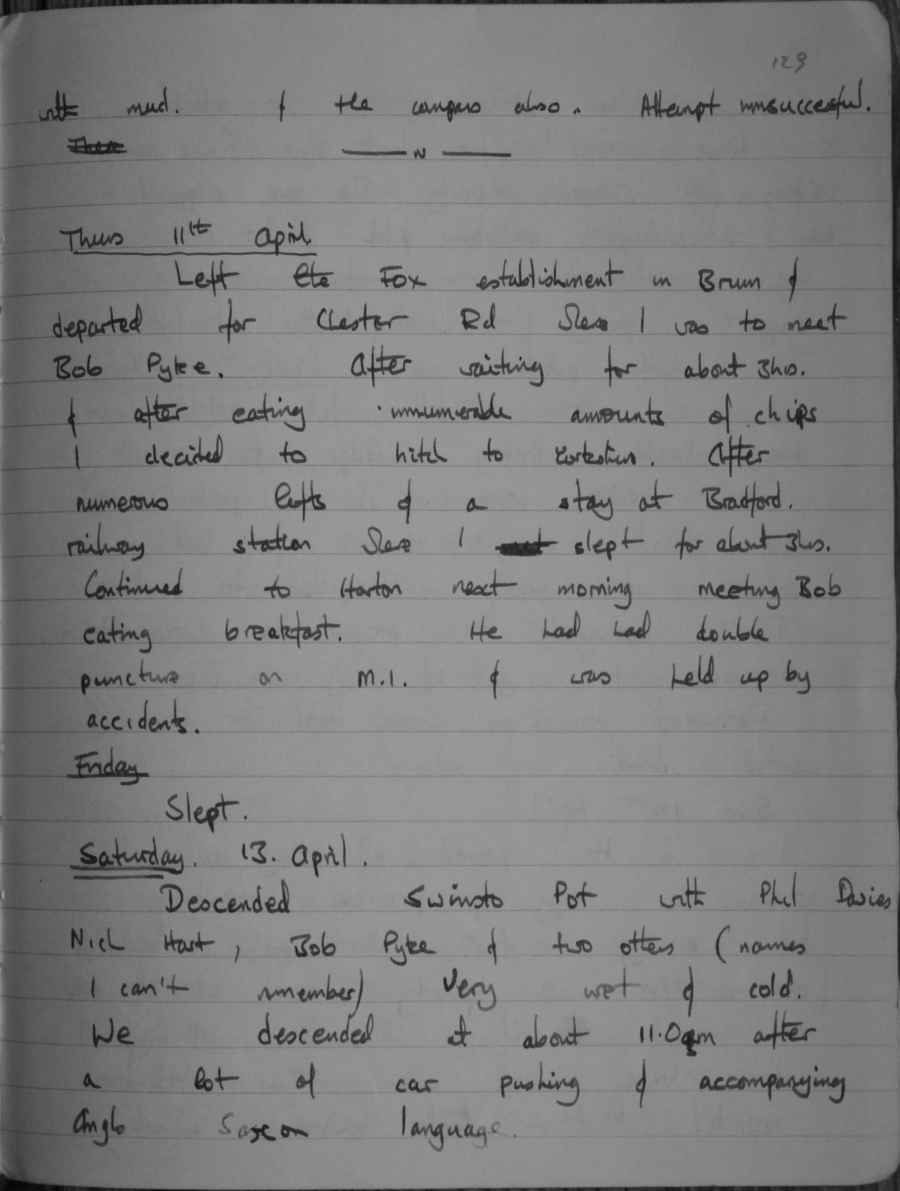 129
with mud. & the campus also. Attempt unsuccessful.
Thurs 11th April
Left the Fox establishment in Brum &
departed for Chester Rd where I was to meet
Bob Pyke. After waiting for about 3hrs.
& after eating innumerable amounts of chips
I decided to hitch to Yorkshire. After
numerous lifts & a stay at Bradford.
railway station where I slept for about 3hrs.
Continued to Horton next morning meeting Bob
eating breakfast. He had had double
puncture on M.1. & was held up by
accidents.
Friday
Slept.
Saturday. 13. April.
Descended Swinsto Pot with Phil Davies
Nick Hart, Bob Pyke & two others (names
I can't remember) Very wet & cold.
We descended at about 11.0am after
a lot of car pushing & accompanying
Anglo Saxon language.